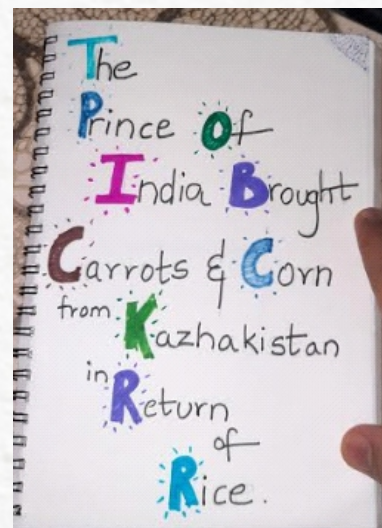 The
Prince Of
India Brought
Carrots & Corn
from Kazhakistan
in Return
of
Rice.